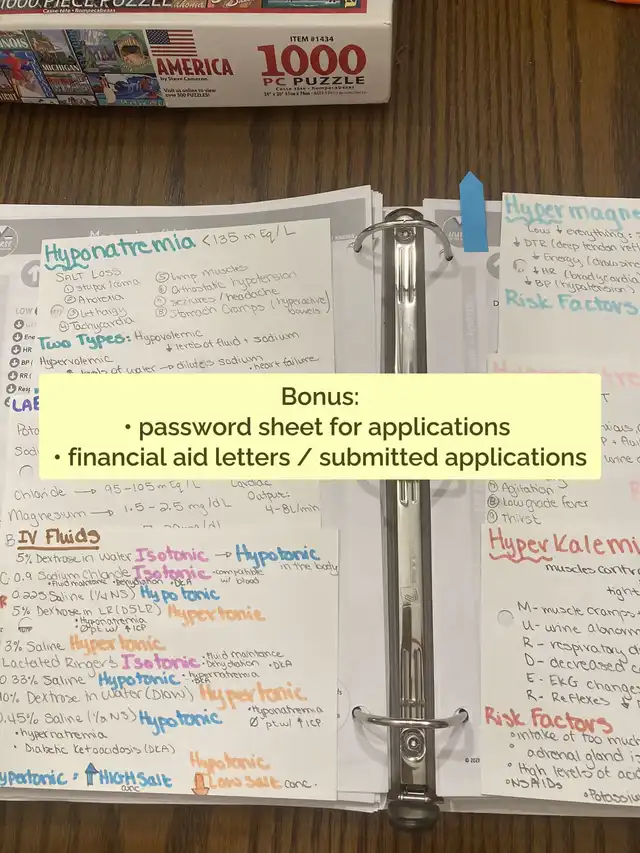 1000 PIECE PUZZLE
Casse-tête • Rompecabezas
MICHIGAN
AMERICA
by Steve Cameron
Visit us online to view
over 500 PUZZLES!
ITEM #1434
1000
PC PUZZLE
Casse-tête • Rompecabezas
Hyponatremia <135 mEq/L
Salt Loss
① stupor/coma
② Anorexia
③ Lethargy
④ Tachycardia
⑤ limp muscles
⑥ Orthostatic hypotension
⑦ Seizures/headache
⑧ Stomach cramps (hyperactive
bowels)
Two Types: Hypovolemic
↓ levels of fluid + sodium
Hypervolemic
levels of water → dilutes sodium • heart failure
LOW
HR
BP
RR
Resp
Bonus:
• password sheet for applications
• financial aid letters / submitted applications
Chloride → 95-105 mEq/L
Magnesium → 1.5-2.5 mg/dL
Cardiac
Output:
4-8L/min
IV Fluids
5% Dextrose in Water Isotonic → Hypotonic
in the body
0.9 Sodium Chloride Isotonic -compatible
w/ blood
• Fluid maintenance • Dehydration • DKA
0.225 Saline (¼ NS) Hypotonic
5% Dextrose in LR (D5LR) Hypertonic
• Hyponatremia
Ø pt w/ ↑ICP
3% Saline Hypertonic
Lactated Ringer's Isotonic • fluid maintenance
• Dehydration • DKA
0.33% Saline Hypotonic • hypernatremia
• DKA
10% Dextrose in Water (D10W) Hypertonic
0.45% Saline (½ NS) Hypotonic
• Hyponatremia
Ø pt w/ ↑ICP
• hypernatremia
• Diabetic ketoacidosis (DKA)
Hypotonic
ypertonic = ↑ HIGH Salt
conc
↓ Low salt conc.
Hypermagne
Low ↓ everything:
↓ DTR (deep tendon re
↓ Energy (drowsine
↓ HR (bradycardia
↓ BP (hypotension)
Risk Factors
⑦ Agitation
⑧ Low grade fever
⑨ Thirst
HyperKalemi
muscles contra
tight
M- muscle cramps
U- urine abnorm
R- respiratory di
D- decreased c
E- EKG change
R- Reflexes
Risk Factors
• intake of too much
• adrenal gland i
• High levels of acid
• NSAIDs
• Potassium